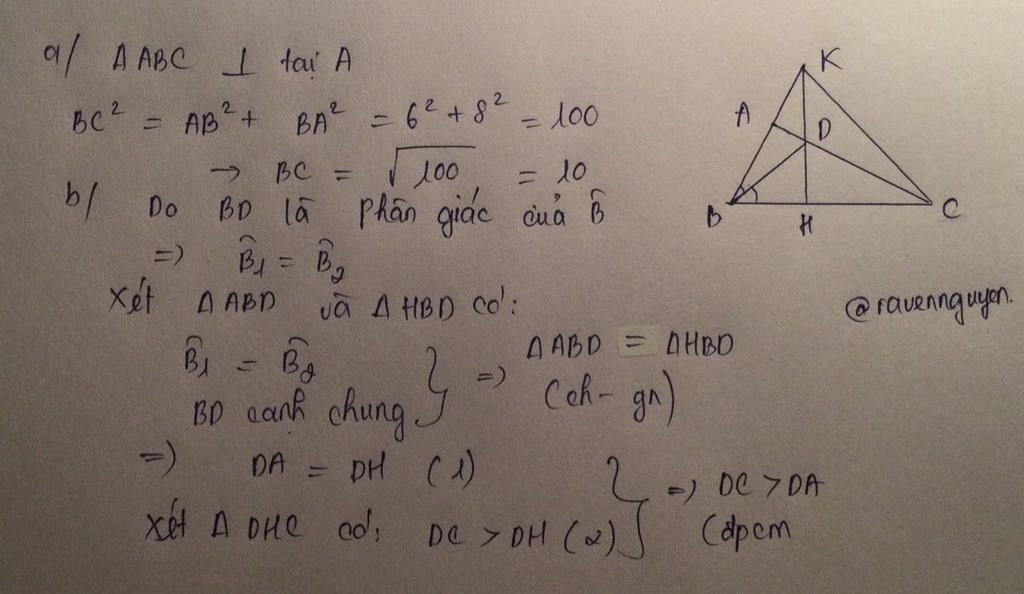 a/ Δ ABC ⊥ tại A
BC² = AB² + BA² = 6² + 8² = 100
→ BC = √100 = 10
b/ Do BD là phân giác của B̂
=> B̂1 = B̂2
Xét Δ ABD và Δ HBD có:
B̂1 = B̂2
BD cạnh chung } => Δ ABD = Δ HBD
(ch - gn)
=> DA = DH (1)
Xét Δ DHC có: DC > DH (2) } => DC > DA
(đpcm
K
A
D
B
H
C
@ravennguyen.